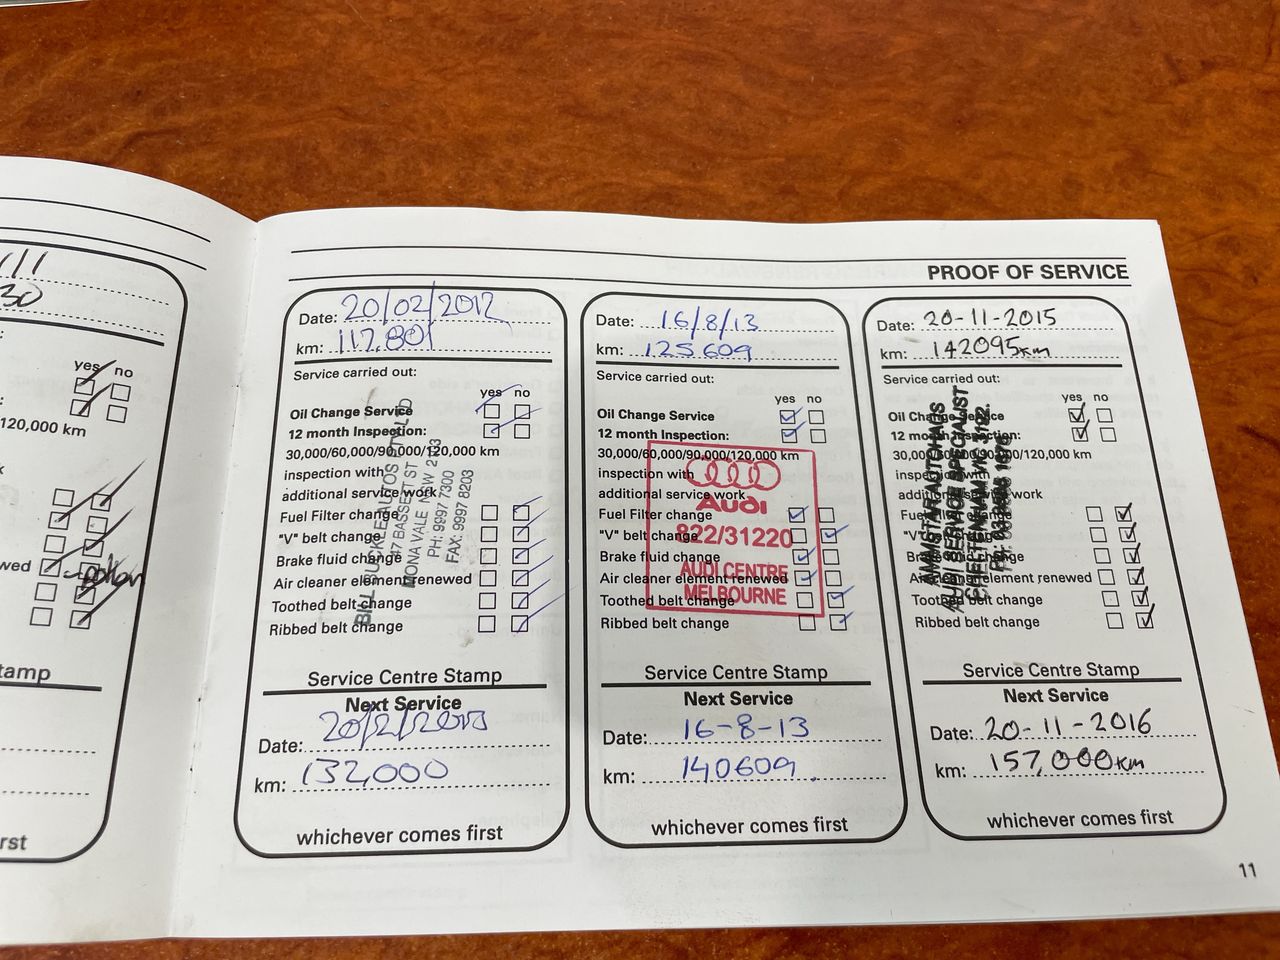 30
yes no
120,000 km
tamp
rst
PROOF OF SERVICE
Date: 20/02/2012
km: 117.801
Service carried out:
yes no
Oil Change Service
12 month Inspection:
30,000/60,000/90,000/120,000 km
inspection with
additional service work
Fuel Filter change
"V" belt change
Brake fluid change
Air cleaner element renewed
Toothed belt change
Ribbed belt change
47 BASSETT ST
MONA VALE NSW 2103
PH: 9997 7300
FAX: 9997 8203
Service Centre Stamp
Next Service
Date: 20/2/2013
km: 132,000
whichever comes first
Date: 16/8/13
km: 125609
Service carried out:
yes no
Oil Change Service
12 month Inspection:
30,000/60,000/90,000/120,000 km
inspection with
additional service work
Fuel Filter change
"V" belt change
Brake fluid change
Air cleaner element renewed
Toothed belt change
Ribbed belt change
Audi
822/31220
AUDI CENTRE
MELBOURNE
Service Centre Stamp
Next Service
Date: 16-8-13
km: 140609
whichever comes first
Date: 20-11-2015
km: 142095km
Service carried out:
yes no
Oil Change Service
12 month Inspection:
30,000/60,000/90,000/120,000 km
inspection with
additional service work
Fuel Filter change
"V" belt change
Brake fluid change
Air cleaner element renewed
Toothed belt change
Ribbed belt change
AUDI SERVICE SPECIALIST
CHELTENHAM VIC 3192.
Service Centre Stamp
Next Service
Date: 20-11-2016
km: 157,000km
whichever comes first
11